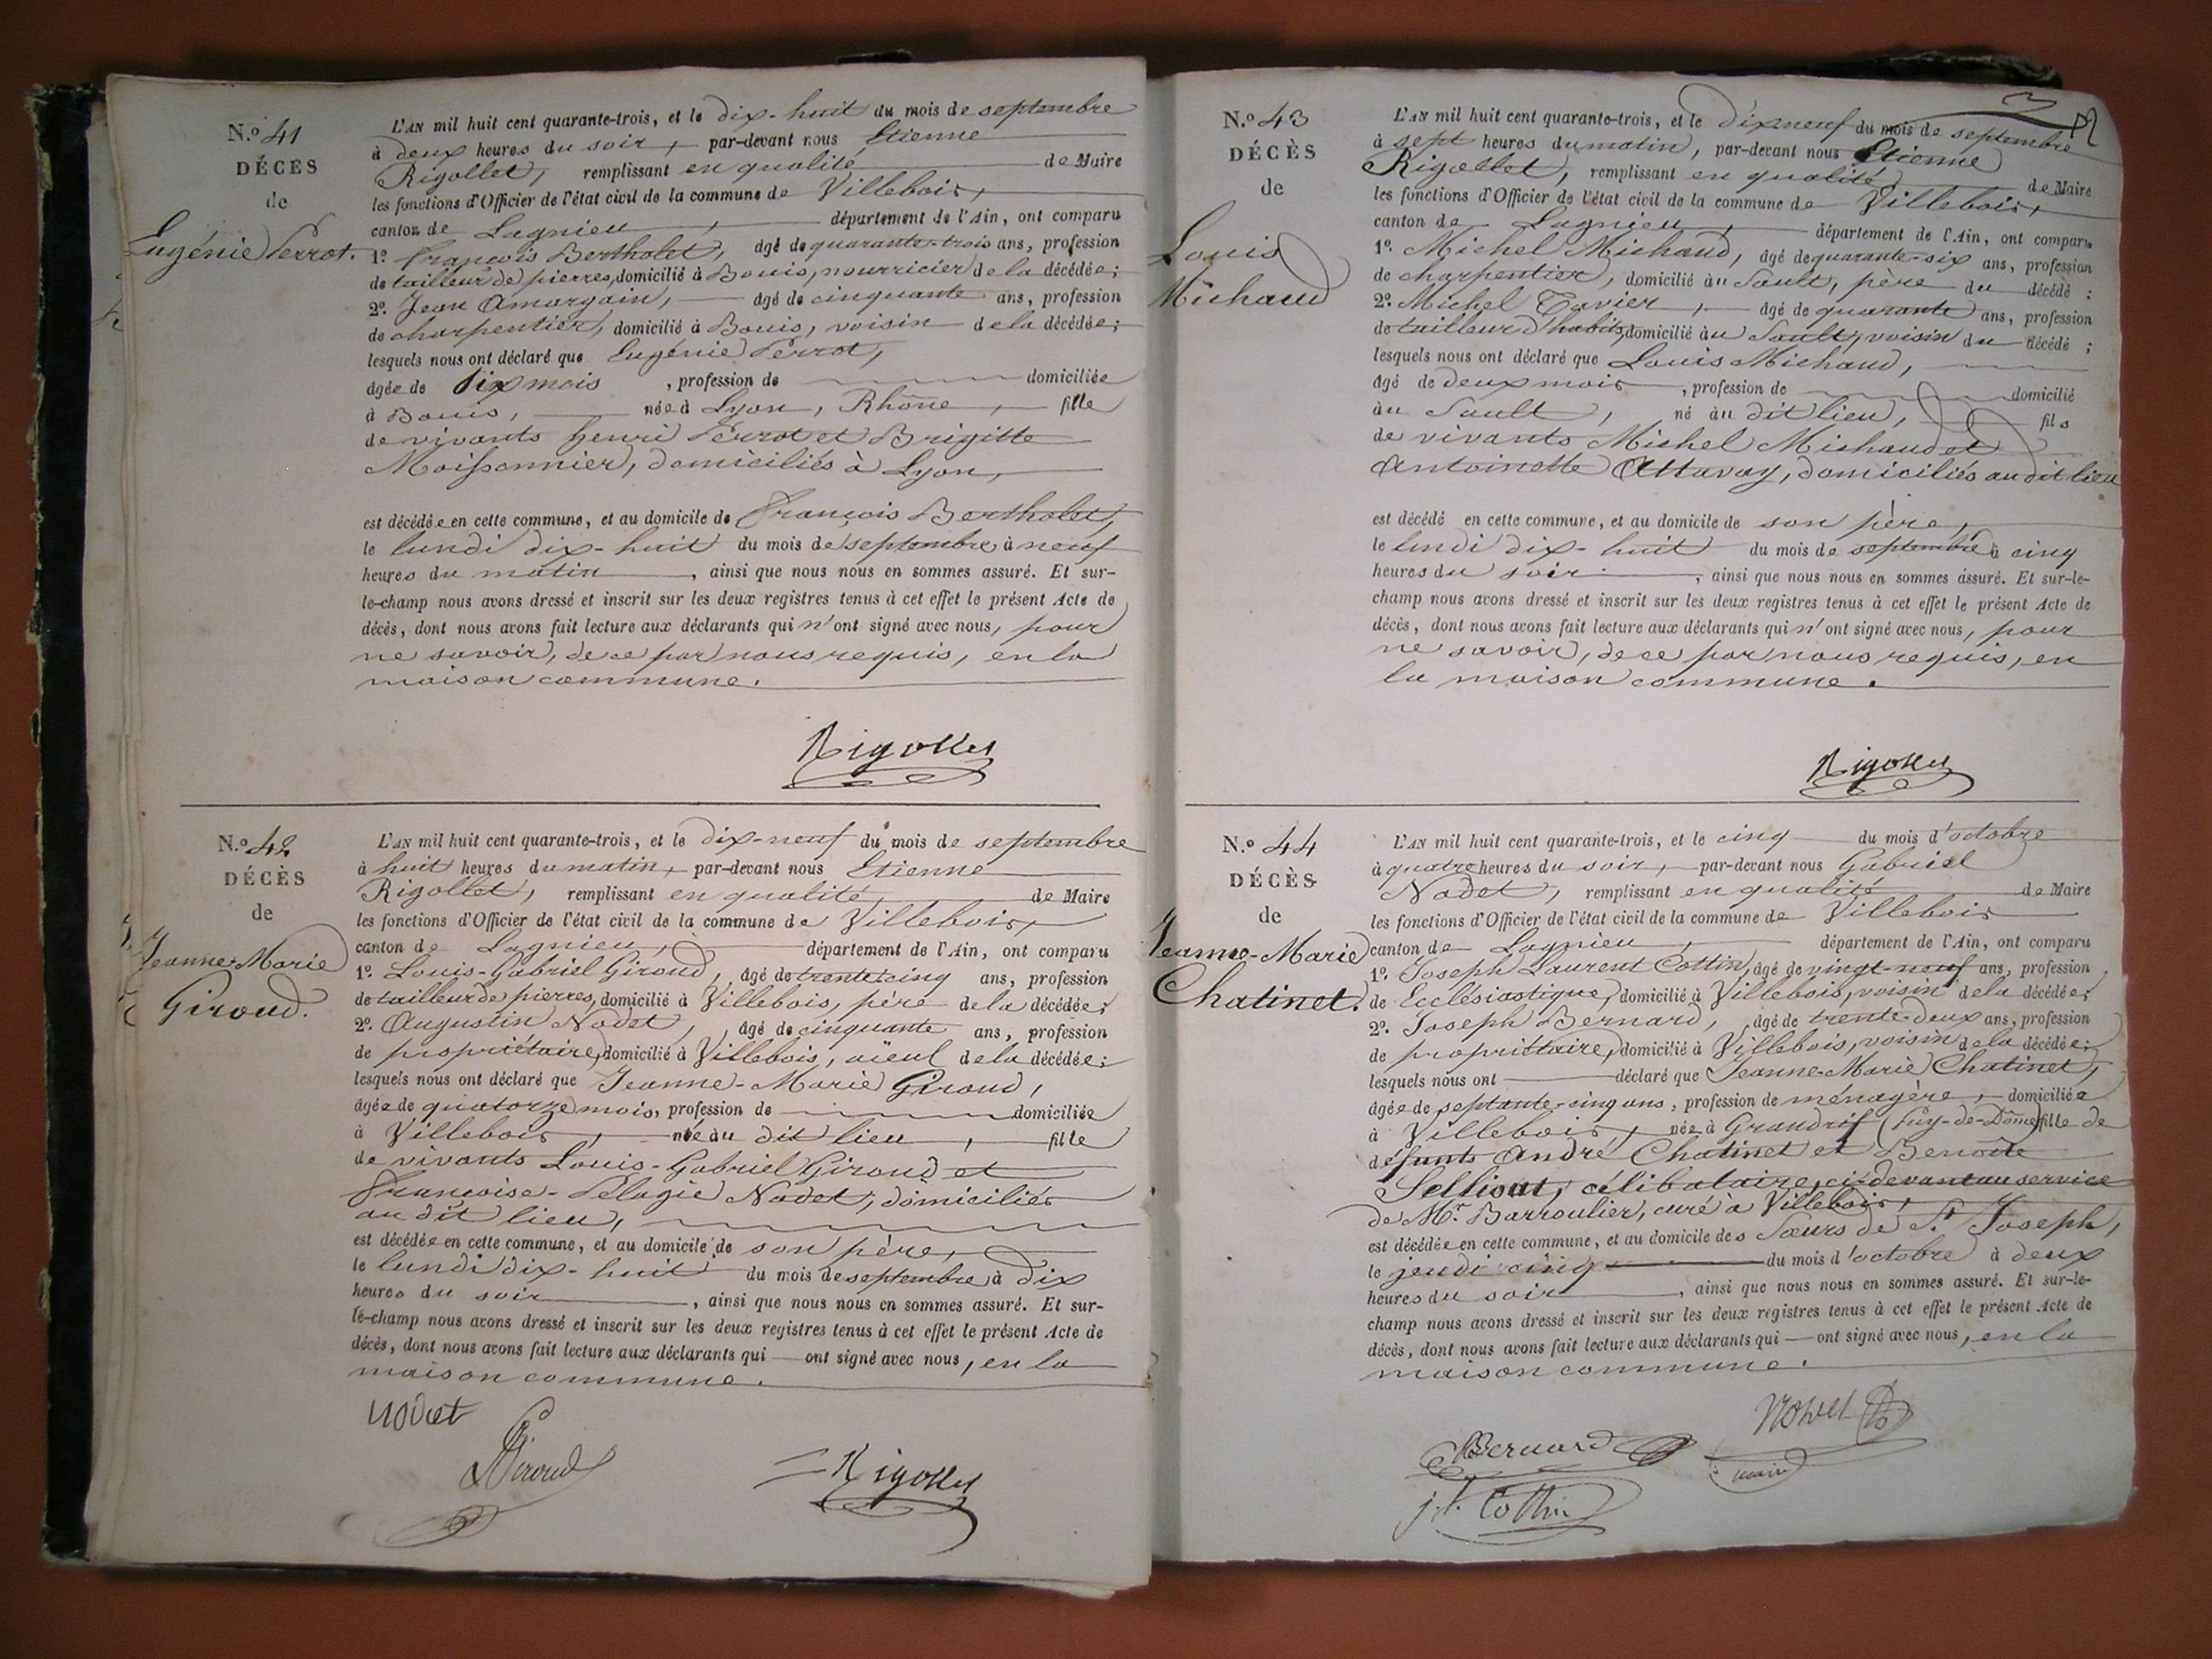 N.º 41
DÉCÈS
de
Eugénie Perrot.
L'AN mil huit cent quarante-trois, et le dix-huit du mois de septembre
à deux heures du soir, par-devant nous Etienne
Rigollet, remplissant en qualité de Maire
les fonctions d'Officier de l'état civil de la commune de Villebois,
canton de Lagnieu, département de l'Ain, ont comparu
1º. François Bertholet, âgé de quarante-trois ans, profession
de tailleur de pierres, domicilié à Bouis, nourricier de la décédée;
2º. Jean Amargain, âgé de cinquante ans, profession
de charpentier, domicilié à Bouis, voisin de la décédée;
lesquels nous ont déclaré que Eugénie Perrot,
âgée de dix mois, profession de domiciliée
à Bouis, née à Lyon, Rhône, fille
de vivants henri Perrot et Brigitte
Moissonnier, domiciliés à Lyon,
est décédée en cette commune, et au domicile de François Bertholet,
le lundi dix-huit du mois de septembre à neuf
heures du matin, ainsi que nous nous en sommes assuré. Et sur-
le-champ nous avons dressé et inscrit sur les deux registres tenus à cet effet le présent Acte de
décès, dont nous avons fait lecture aux déclarants qui n'ont signé avec nous, pour
ne savoir, de ce par nous requis, en la
maison commune.
Rigollet
N.º 42
DÉCÈS
de
Jeanne-Marie
Giroud.
L'AN mil huit cent quarante-trois, et le dix-neuf du mois de septembre
à huit heures du matin, par-devant nous Etienne
Rigollet, remplissant en qualité, de Maire
les fonctions d'Officier de l'état civil de la commune de Villebois,
canton de Lagnieu, département de l'Ain, ont comparu
1º. Louis-Gabriel Giroud, âgé de trente cinq ans, profession
de tailleur de pierres, domicilié à Villebois, père de la décédée;
2º. Augustin Nodet, âgé de cinquante ans, profession
de propriétaire, domicilié à Villebois, aïeul de la décédée;
lesquels nous ont déclaré que Jeanne-Marie Giroud,
âgée de quatorze mois, profession de domiciliée
à Villebois, née au dit lieu, fille
de vivants Louis-Gabriel Giroud et
Françoise-Pélagie Nodet, domiciliés
au dit lieu,
est décédée en cette commune, et au domicile de son père,
le lundi dix-huit du mois de septembre à dix
heures du soir, ainsi que nous nous en sommes assuré. Et sur-
le-champ nous avons dressé et inscrit sur les deux registres tenus à cet effet le présent Acte de
décès, dont nous avons fait lecture aux déclarants qui ont signé avec nous, en la
maison commune.
Nodet
Giroud
Rigollet
N.º 43
DÉCÈS
de
Louis
Michaud
L'AN mil huit cent quarante-trois, et le dix neuf du mois de septembre
à sept heures du matin, par-devant nous Etienne
Rigollet, remplissant en qualité de Maire
les fonctions d'Officier de l'état civil de la commune de Villebois,
canton de Lagnieu, département de l'Ain, ont comparu
1º. Michel Michaud, âgé de quarante-six ans, profession
de charpentier, domicilié au Sault, père du décédé;
2º. Michel Tavier, âgé de quarante ans, profession
de tailleur d'habits, domicilié au Sault, voisin du décédé;
lesquels nous ont déclaré que Louis Michaud,
âgé de deux mois, profession de domicilié
au Sault, né au dit lieu, fils
de vivants Michel Michaud et
Antoinette Attavay, domiciliés au dit lieu
est décédé en cette commune, et au domicile de son père,
le lundi dix-huit du mois de septembre à cinq
heures du soir, ainsi que nous nous en sommes assuré. Et sur-le-
champ nous avons dressé et inscrit sur les deux registres tenus à cet effet le présent Acte de
décès, dont nous avons fait lecture aux déclarants qui n'ont signé avec nous, pour
ne savoir, de ce par nous requis, en
la maison commune.
Rigollet
N.º 44
DÉCÈS
de
Jeanne-Marie
Chatinet.
L'AN mil huit cent quarante-trois, et le cinq du mois d'octobre
à quatre heures du soir, par-devant nous Gabriel
Nodet, remplissant en qualité de Maire
les fonctions d'Officier de l'état civil de la commune de Villebois
canton de Lagnieu, département de l'Ain, ont comparu
1º. Joseph Laurent Cottin, âgé de vingt-neuf ans, profession
de Ecclésiastique, domicilié à Villebois, voisin de la décédée;
2º. Joseph Bernard, âgé de trente-deux ans, profession
de propriétaire, domicilié à Villebois, voisin de la décédée;
lesquels nous ont déclaré que Jeanne-Marie Chatinet,
âgée de septante-cinq ans, profession de ménagère, domiciliée
à Villebois, née à Grandrif (Puy-de-Dôme) fille de
défunts André Chatinet et Benoîte
Sellioat, célibataire, ci-devant au service
de Mr. Barroulier, curé à Villebois,
est décédée en cette commune, et au domicile des Sœurs de St Joseph,
le jeudi cinq du mois d'octobre à deux
heures du soir, ainsi que nous nous en sommes assuré. Et sur-le-
champ nous avons dressé et inscrit sur les deux registres tenus à cet effet le présent Acte de
décès, dont nous avons fait lecture aux déclarants qui ont signé avec nous, en la
maison commune.
Nodet
maire
Bernard
j. l. Cottin